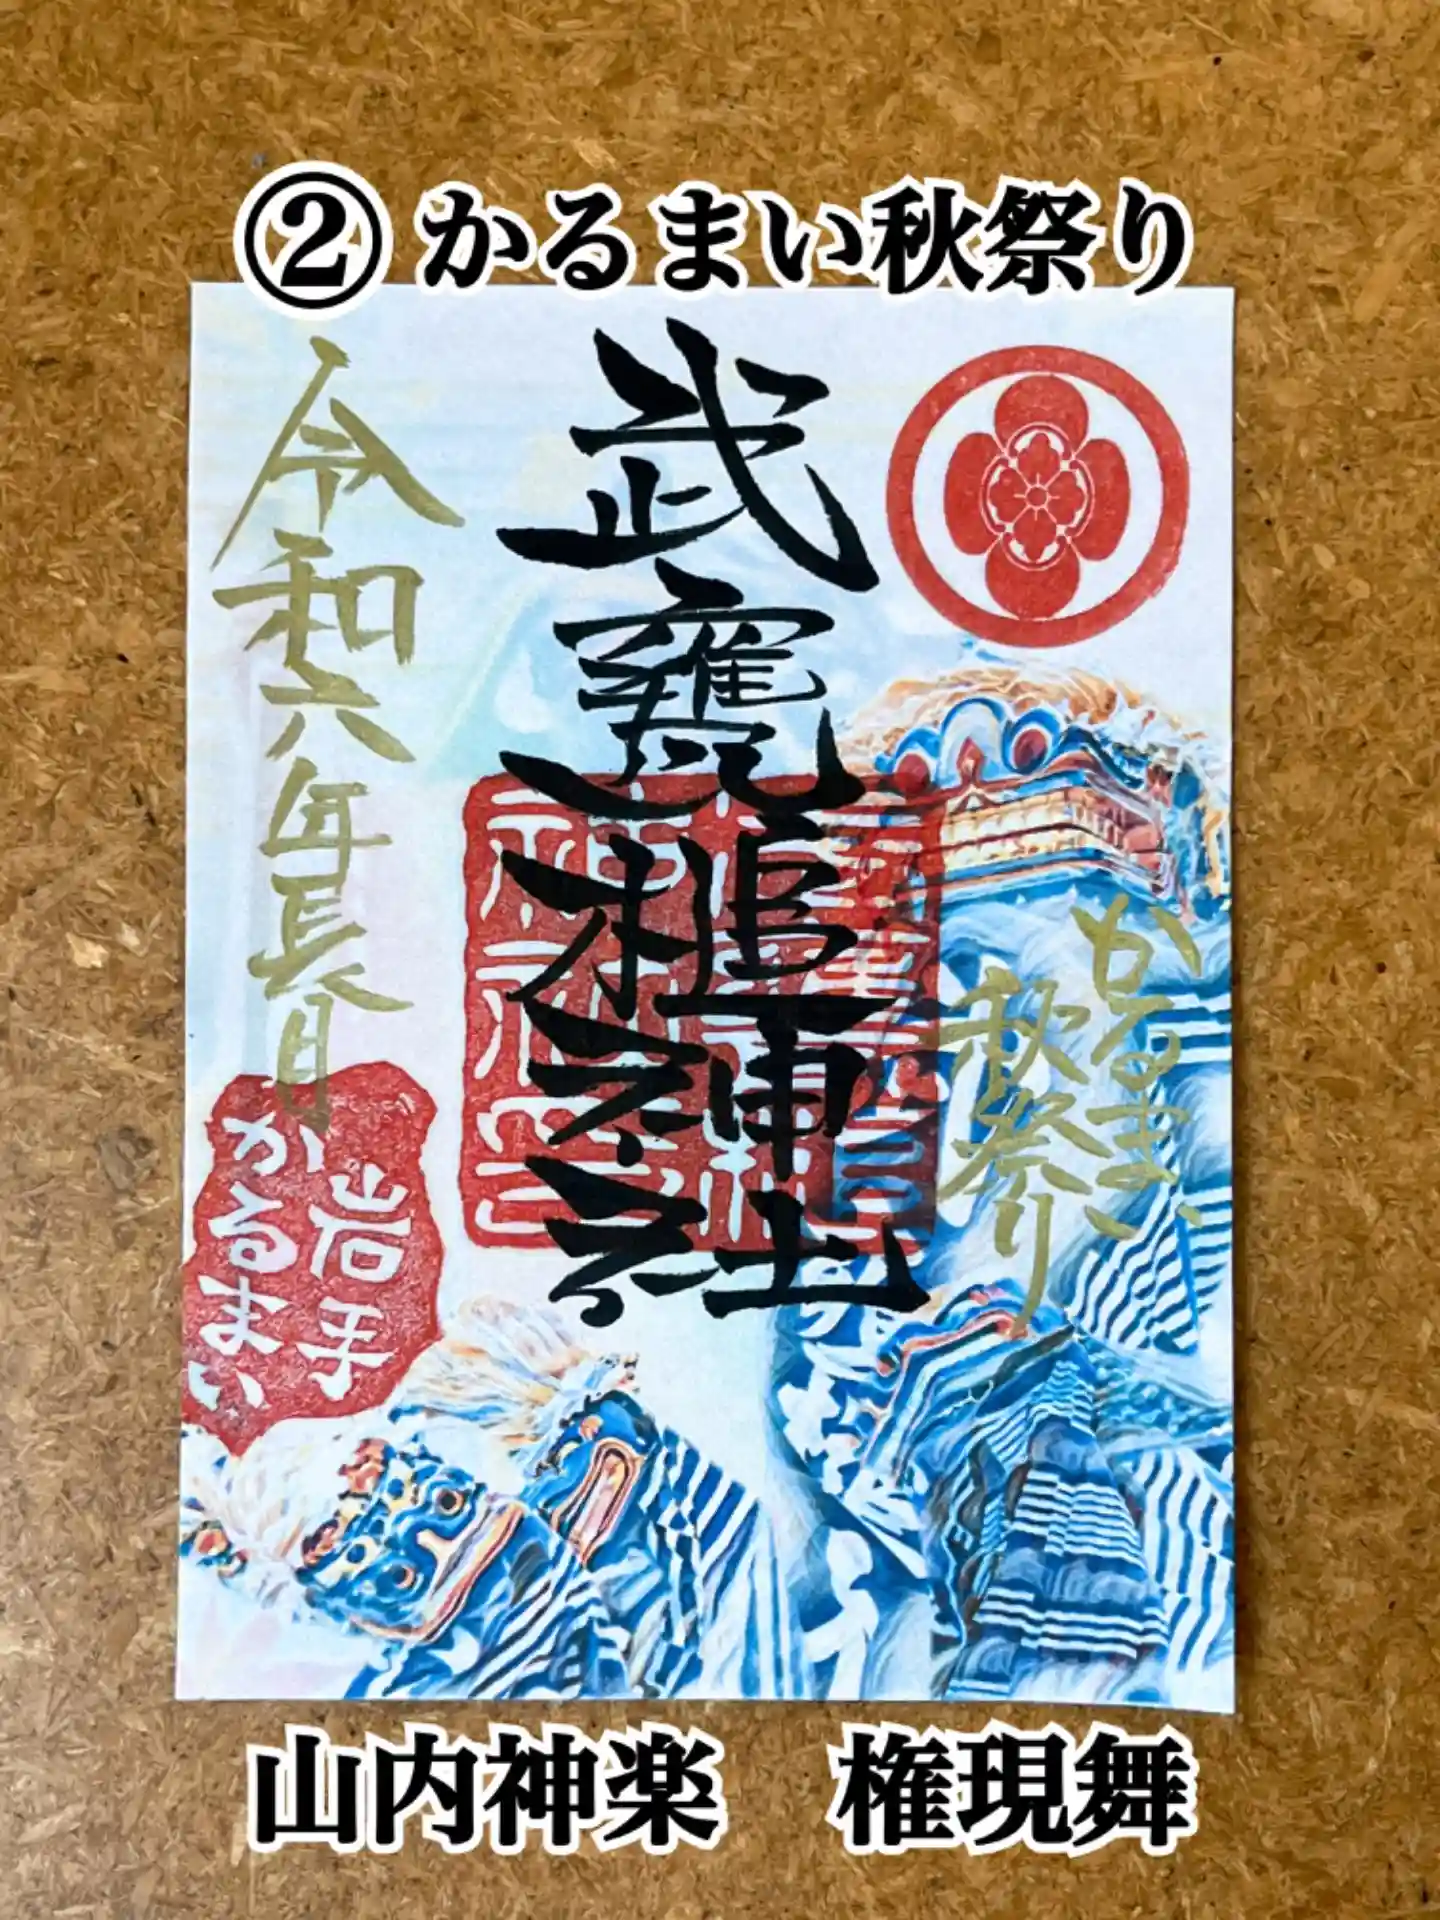 ② かるまい秋祭り
武甕槌神社
かるまい
秋祭り
令和六年長月
岩手
かるまい
山内神楽 権現舞